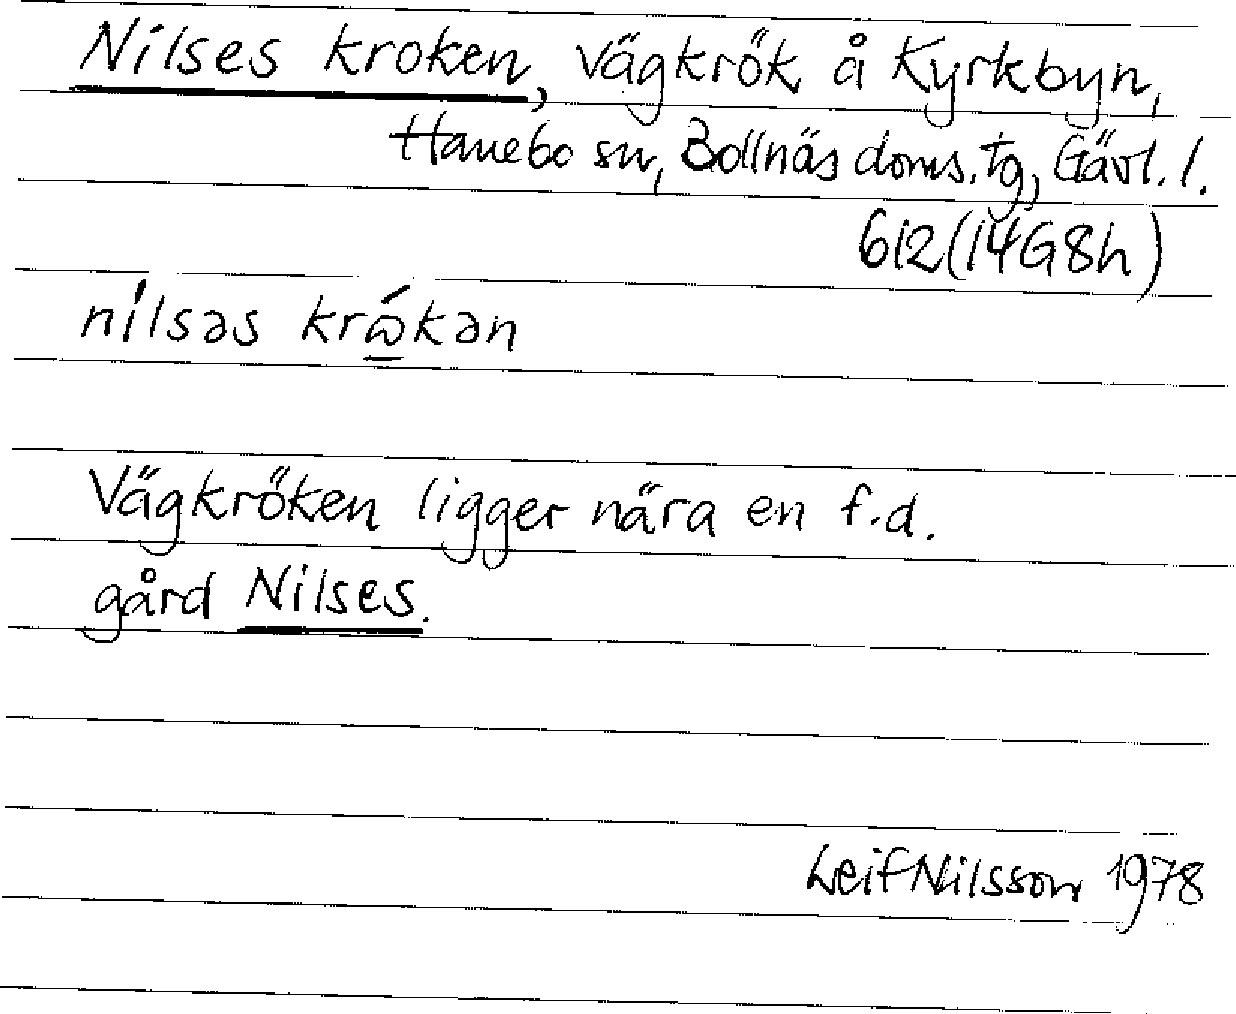 Nilses kroken, vägkrök å Kyrkbyn,
Hanebo sn, Bollnäs doms. tg, Gävl. l.
612(14G8h)
nílsəs krώ̱kən
Vägkröken ligger nära en f.d.
gård Nilses.
Leif Nilsson 1978